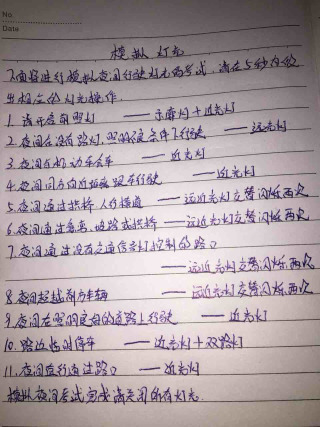 No.
Date
模拟灯光
下面将进行模拟夜间行驶灯光的考试，请在5秒内做
出相应的灯光操作.
1. 请开启前照灯 —— 示廓灯+近光灯
2. 夜间在没有路灯，照明不良条件下行驶 —— 远光灯
3. 夜间与机动车会车 —— 近光灯
4. 夜间同方向近距离跟车行驶 —— 近光灯
5. 夜间通过拱桥、人行横道 —— 远近光灯交替闪烁两次
6. 夜间通过急弯、坡路或拱桥 —— 远近光灯交替闪烁两次
7. 夜间通过没有交通信号灯控制的路口
—— 远近光灯交替闪烁两次
8. 夜间超越前方车辆 —— 远近光灯交替闪烁两次
9. 夜间在照明良好的道路上行驶 —— 近光灯
10. 路边临时停车 —— 近光灯+双跳灯
11. 夜间直行通过路口 —— 近光灯
模拟夜间考试完成请关闭所有灯光.